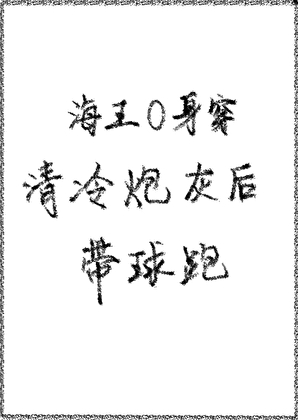 海王0身穿
清冷炮灰后
带球跑